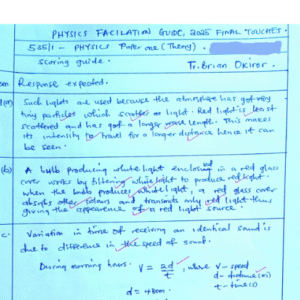 PHYSICS FACILATION GUIDE, 2025 FINAL TOUCHES.
535/1 - PHYSICS Paper one (Theory).
Scoring guide. Tr. Brian Okiror.
Response expected.
(a) Such lights are used because the atmosphere has got very
tiny particles which scatter light. Red light is least
scattered and has got a longer wave length. This makes
its intensity to travel for a longer distance hence it can
be seen.
(b) A bulb producing white light enclosing in a red glass
cover works by filtering white light to produce red light.
when the bulb produces white light, a red glass cover
absorbs other colours and transmits only red light thus
giving the appearance of a red light source.
c. Variation in time of receiving an identical sound is
due to difference in the speed of sound.
During morning hours. V = 2d/t, where V - speed
d - distance (m)
t - time (s)
d = 480m.